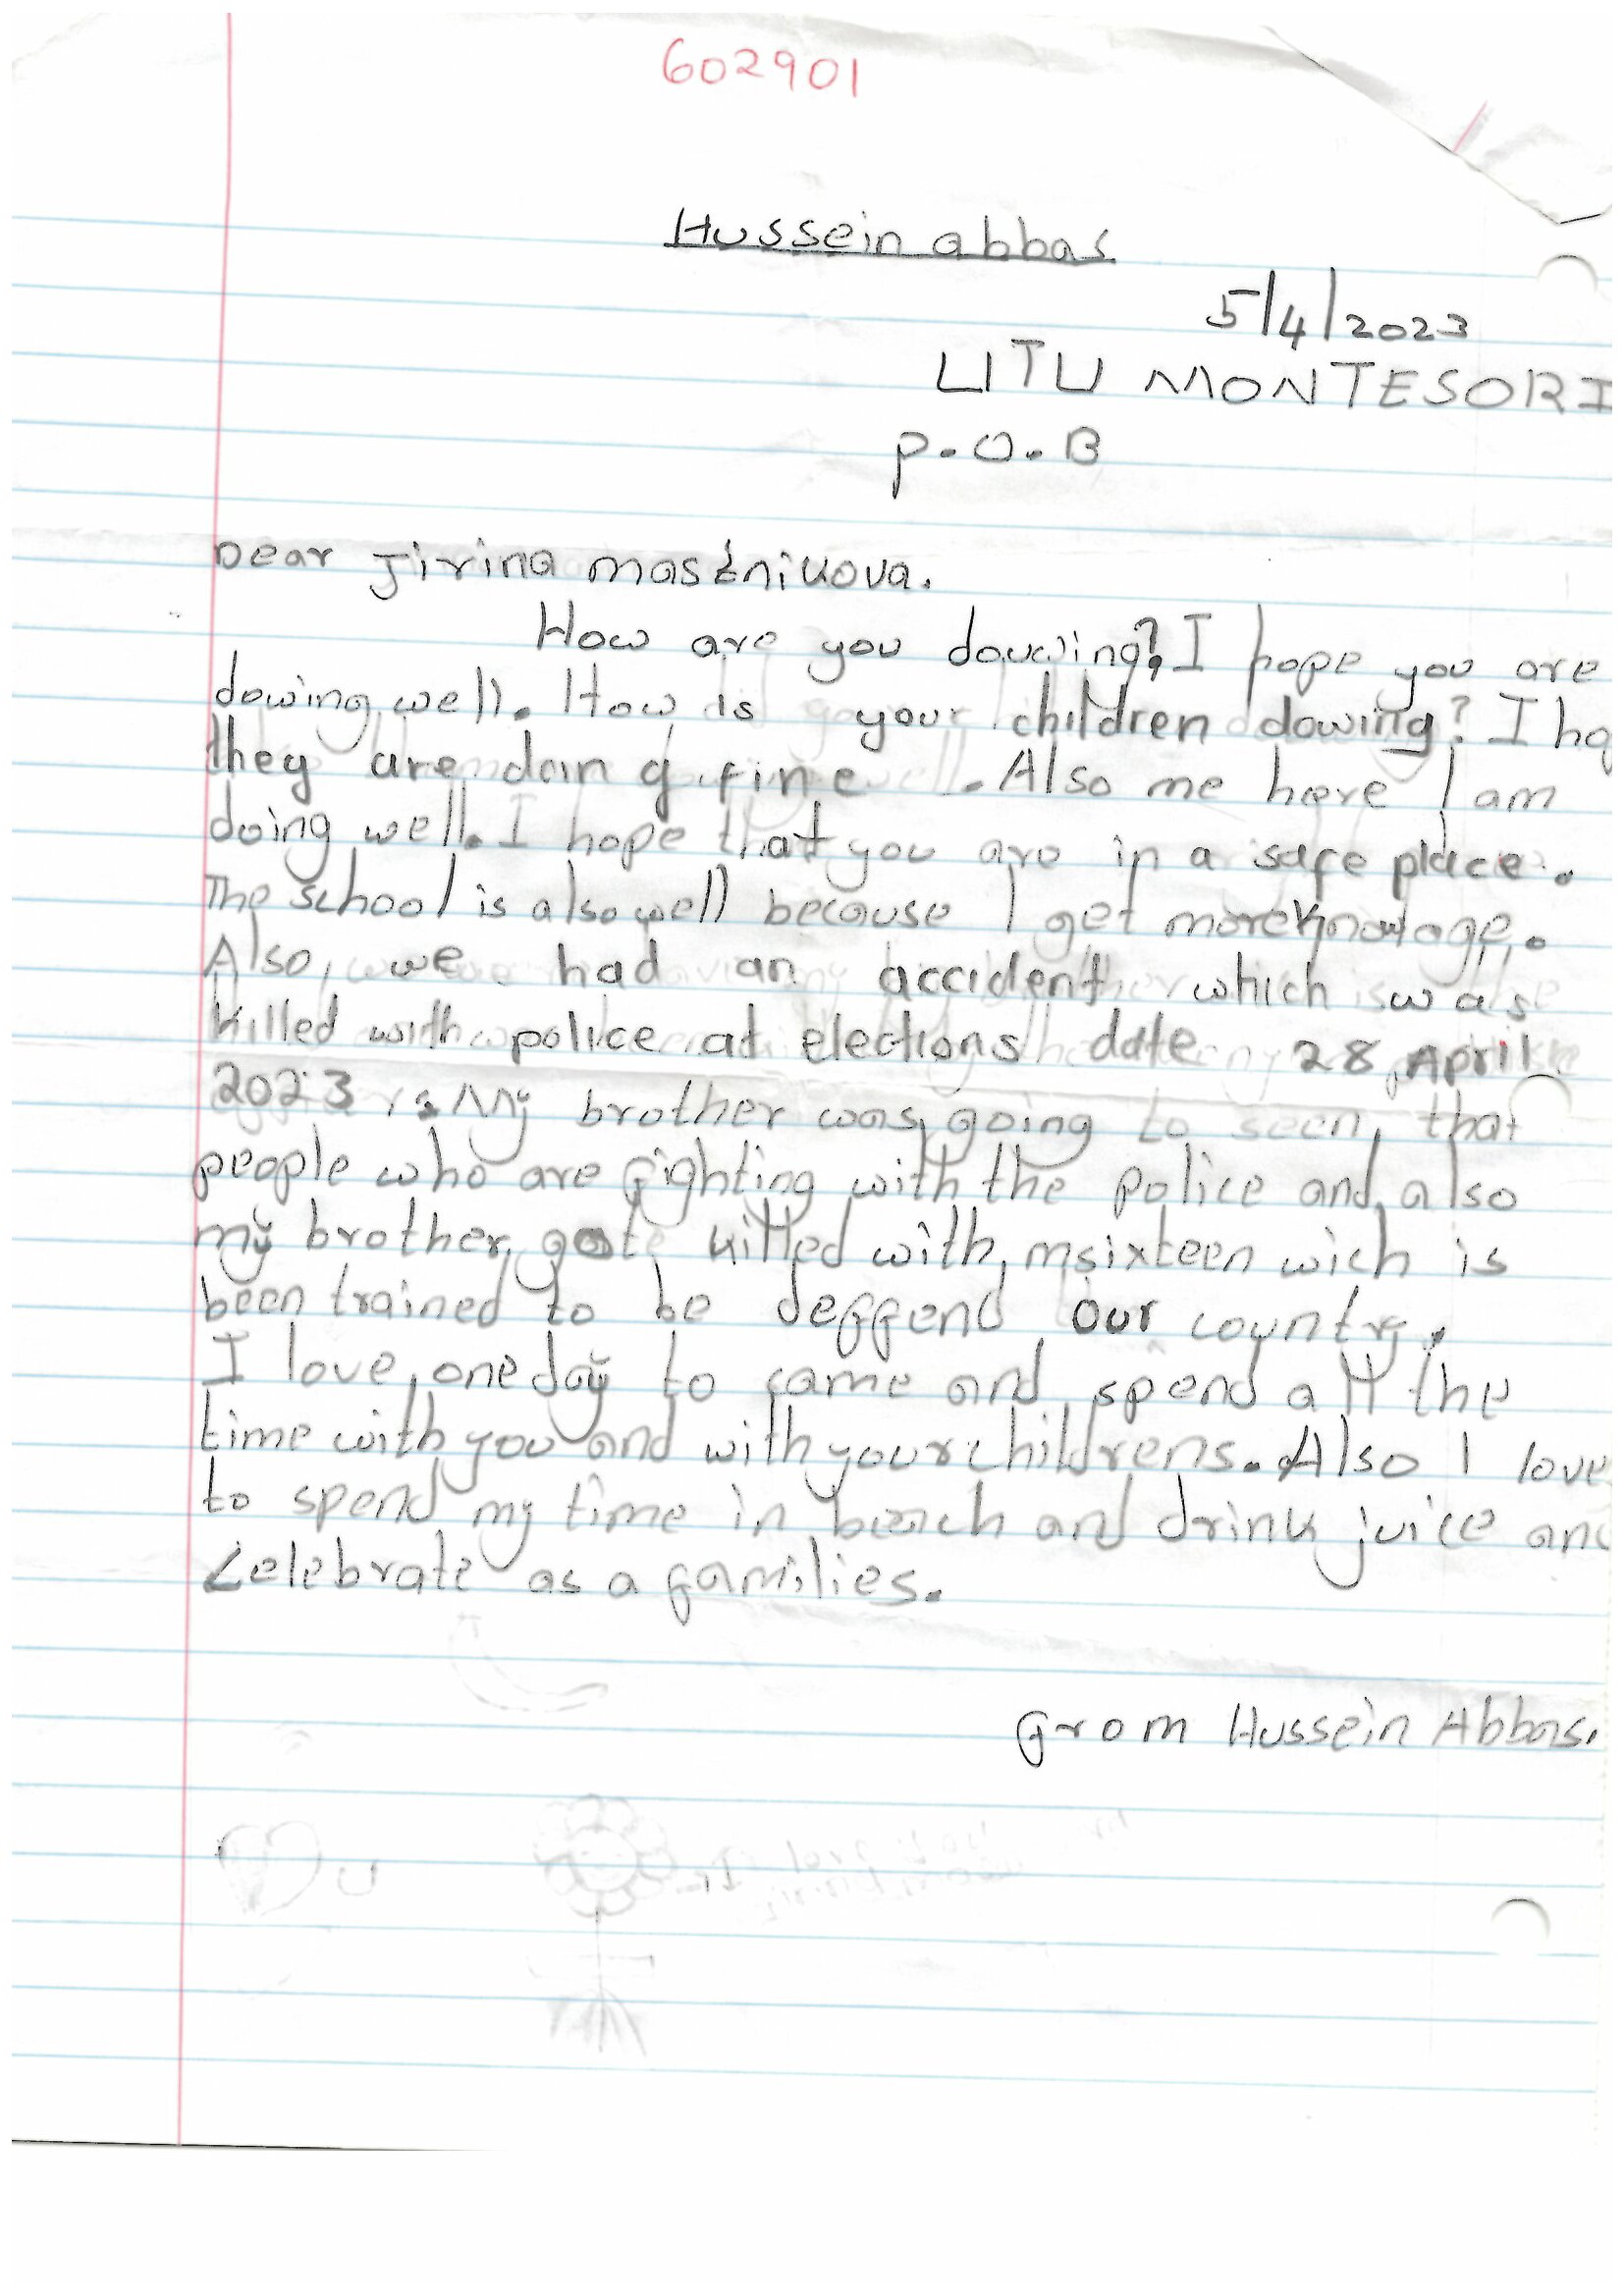 602901
Hussein abbas
5/4/2023
LITU MONTESORI
P.O.B
Dear Jirina
How are you douwing? I hope you are
dowing well. How is your children dowing? I ho
they are doing fine. Also me here I am
doing well. I hope that you are in a safe place.
The school is also well because I get more
Also, we had an accident which was
killed with police at elections date 28 April
2023 is My brother was going to seen that
people who are fighting with the police and also
my brother got killed with msixteen wich is
been trained to be deffend our country.
I love one day to came and spend all the
time with you and with your childrens. Also I love
to spend my time in beach and drink juice and
Celebrate as a families.
from Hussein Abbas.